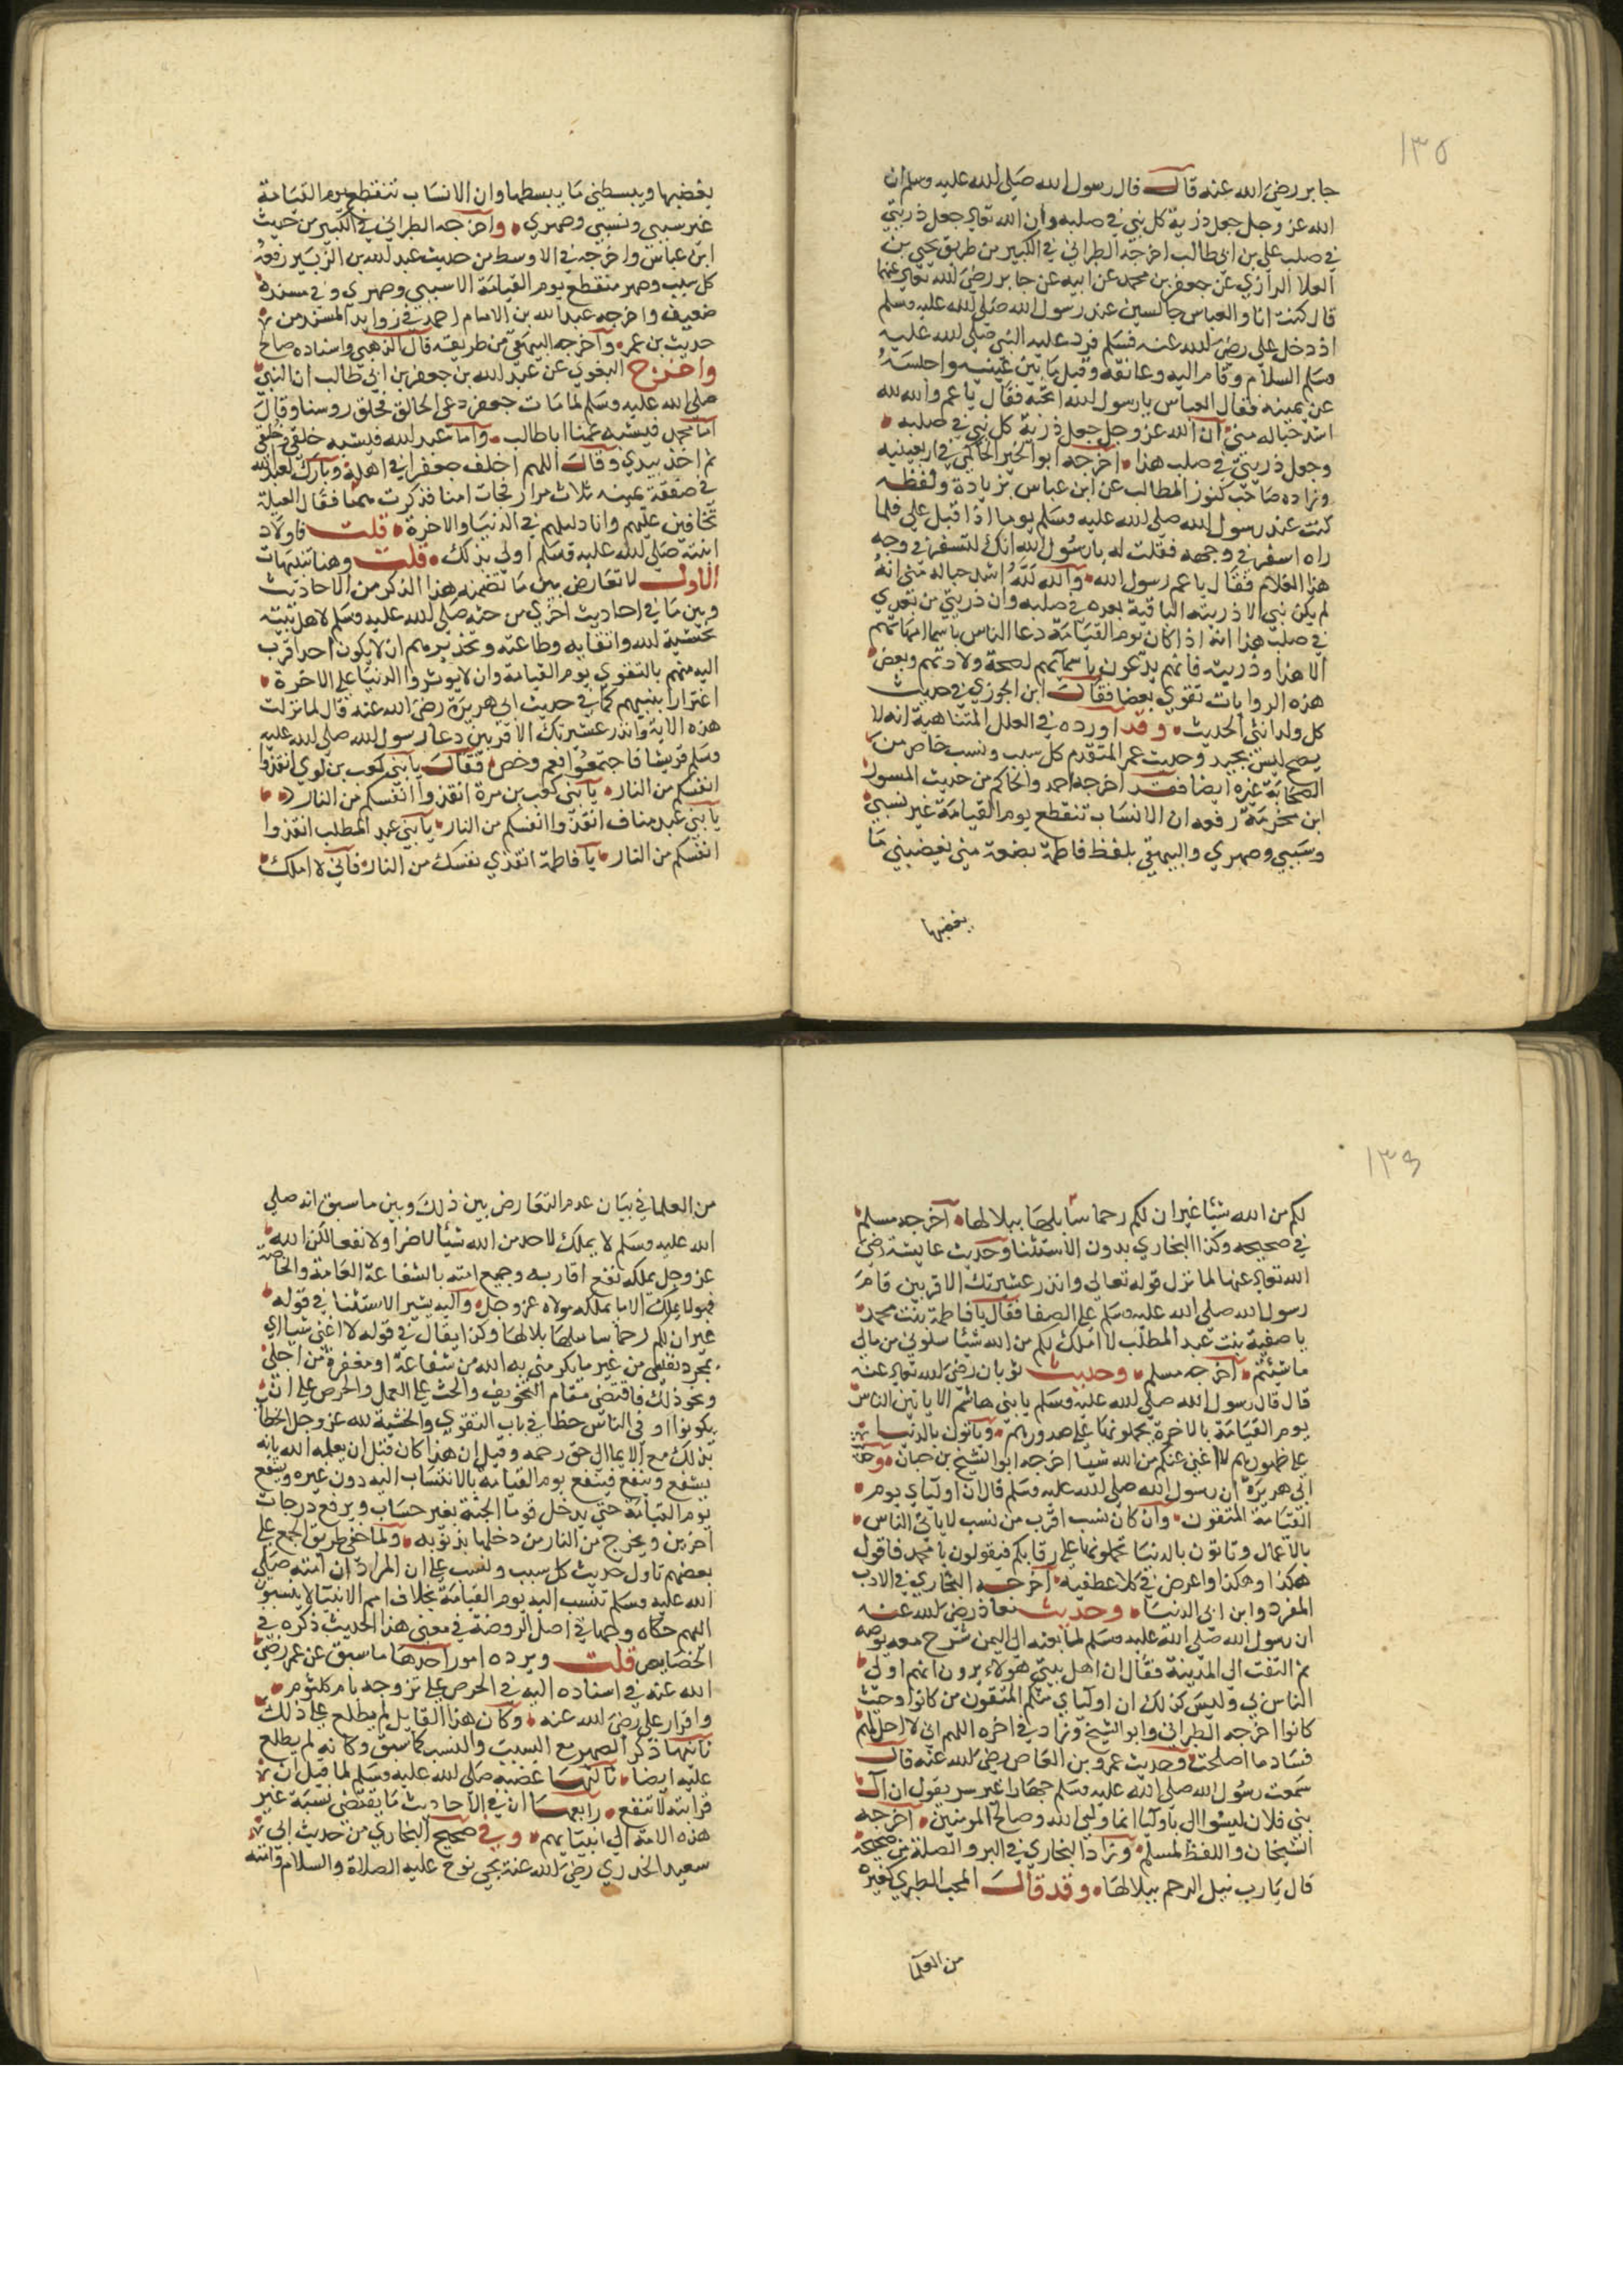 ١٣٥
جابر رضي الله عنه قال قال رسول الله صلى الله عليه وسلم ان
الله عز وجل جعل ذرية كل نبي في صلبه وان الله تعالى جعل ذريتي
في صلب علي بن ابي طالب اخرجه الطبراني في الكبير من طريق يحيى بن
العلا الرازي عن جعفر بن محمد عن ابيه عن جابر رضي الله تعالى عنهما
قال كنت انا والعباس جالسين عند رسول الله صلى الله عليه وسلم
اذ دخل علي رضي الله عنه فسلم فرد عليه النبي صلى الله عليه
وسلم السلام وقام اليه وعانقه وقبل ما بين عينيه واجلسه
عن يمينه فقال العباس يا رسول الله اتحبه فقال يا عم والله لله
اشد حبا له مني ان الله عز وجل جعل ذرية كل نبي في صلبه
وجعل ذريتي في صلب هذا اخرجه ابو الخير الحاكمي في اربعينيه
وزاده صاحب كنوز المطالب عن ابن عباس بزيادة ولفظه
كنت عند رسول الله صلى الله عليه وسلم يوما اذا قبل علي فلما
راه اسفر في وجهه فقلت له يا رسول الله انك لتسفر في وجه
هذا الغلام فقال يا عم رسول الله والله لله اشد حبا له مني انه
لم يكن نبي الا ذريته الباقية بعده في صلبه وان ذريتي من بعدي
في صلب هذا انه اذا كان يوم القيامة دعا الناس باسما امهاتهم
الا هذا وذريته فانهم يدعون باسمائهم لصحة ولادتهم وبعض
هذه الروايات تقوي بعضا فقال ابن الجوزي في حديث
كل ولد انثى الحديث وقد اورده في العلل المتناهية انه لا
يصح ليس بجيد وحديث عمر المتقدم كل سبب ونسب خاص من
الصحابة غيره ايضا فقد اخرجه احمد والحاكم من حديث المسور
ابن مخرمة رفعه ان الانساب تنقطع يوم القيامة غير نسبي
وسببي وصهري والبيهقي بلفظ فاطمة بضعة مني يغضبني ما
يغضبها
يغضبها ويبسطني ما يبسطها وان الانساب تنقطع يوم القيامة
غير سببي ونسبي وصهري واخرجه الطبراني في الكبير من حديث
ابن عباس واخرجه في الاوسط من حديث عبد الله بن الزبير رفعه
كل سبب وصهر منقطع يوم القيامة الا سببي وصهري وفي مسنده
ضعيف واخرجه عبد الله بن الامام احمد في زوايد المسند من
حديث بن عمر واخرجه البيهقي من طريقه قال الذهبي واسناده صالح
واخرج البغوي عن عبد الله بن جعفر بن ابي طالب ان النبي
صلى الله عليه وسلم لما مات جعفر دعى الحالق فحلق روسنا وقال
اما محمد فيشبه عمنا ابا طالب واما عبد الله فيشبه خلقي وخلقي
ثم اخذ بيدي وقال اللهم اخلف جعفرا في اهله وبارك لعبد الله
في صفقة يمينه ثلاث مرار فجات امنا فذكرت يتمنا فقال العيلة
تخافين عليهم وانا وليهم في الدنيا والاخرة قلت فاولاد
ابنته صلى الله عليه وسلم اولى بذلك قلت وهنا تنبيهات
الاول لا تعارض بين ما تضمنه هذا الذكر من الاحاديث
وبين ما في احاديث اخرى من حثه صلى الله عليه وسلم لاهل بيته
خشية لله واتقايه وطاعته وتحذيرهم ان لا يكون احد اقرب
اليه منهم بالتقوى يوم القيامة وان لا يوثروا الدنيا على الاخرة
اغترارا بنسبهم كما في حديث ابي هريرة رضي الله عنه قال لما نزلت
هذه الاية وانذر عشيرتك الاقربين دعا رسول الله صلى الله عليه
وسلم قريشا فاجتمعوا فعم وخص فقال يا بني كعب بن لوي انقذوا
انفسكم من النار يا بني كعب بن مرة انقذوا انفسكم من النار
يا بني عبد مناف انقذوا انفسكم من النار يا بني عبد المطلب انقذوا
انفسكم من النار يا فاطمة انقذي نفسك من النار فاني لا املك
١٣٦
لكم من الله شيئا غير ان لكم رحما سابلها ببلالها اخرجه مسلم
في صحيحه وكذا البخاري بدون الاستثنا وحديث عايشة رضي
الله تعالى عنها لما نزل قوله تعالى وانذر عشيرتك الاقربين قام
رسول الله صلى الله عليه وسلم على الصفا فقال يا فاطمة بنت محمد
يا صفية بنت عبد المطلب لا املك لكم من الله شيئا سلوني من مالي
ما شئتم اخرجه مسلم وحديث ثوبان رضي الله تعالى عنه
قال قال رسول الله صلى الله عليه وسلم يا بني هاشم الا ياتين الناس
يوم القيامة بالاخرة يحملونها على صدورهم وتاتون بالدنيا
على ظهورهم لا اغني عنكم من الله شيا اخرجه ابو الشيخ بن حبان
ابي هريرة ان رسول الله صلى الله عليه وسلم قال ان اوليائي يوم
القيامة المتقون وان كان نسب اقرب من نسب لا ياتي الناس
بالاعمال وتاتون بالدنيا تحملونها على رقابكم فيقولون يا محمد فاقول
هكذا وهكذا واعرض في كلا عطفيه اخرجه البخاري في الادب
المفرد وابن ابي الدنيا وحديث معاذ رضي الله عنه
ان رسول الله صلى الله عليه وسلم لما بعثه الى اليمن خرج معه يوصيه
ثم التفت الى المدينة فقال ان اهل بيتي هولاء يرون انهم اولى
الناس بي وليس كذلك ان اوليائي منكم المتقون من كانوا وحيث
كانوا اخرجه الطبراني وابو الشيخ وزاد في اخره اللهم اني لا احل لهم
فساد ما اصلحت وحديث عمرو بن العاص رضي الله عنه قال
سمعت رسول الله صلى الله عليه وسلم جهارا غير سر يقول ان ال
بني فلان ليسوا الي باوليا انما وليي الله وصالح المومنين اخرجه
الشيخان واللفظ لمسلم وزاد البخاري في البر والصلة من صحيحه
قال يا رب نبل الرحم ببلالها وقد قال المحب الطبري كغيره
من العلما
من العلما في بيان عدم التعارض بين ذلك وبين ما سبق انه صلى
الله عليه وسلم لا يملك لاحد من الله شيئا لا ضرا ولا نفعا لكن الله
عز وجل يملكه نفع اقاربه وجميع امته بالشفاعة العامة والخاصة
فهو لا يملك الا ما يملكه مولاه عز وجل واليه يشير الاستثنا في قوله
غير ان لكم رحما سابلها ببلالها وكذا يقال في قوله لا اغني شيا اي
بمجرد نفسي من غير ما يكرمني به الله من شفاعة او مغفرة من اجلي
ونحو ذلك فاقتضى مقام التخويف والحث على العمل والحرص على ان
يكونوا اوفى الناس حظا في باب التقوى والخشية لله عز وجل الخطاب
بذلك مع الايما الى حق رحمه وقيل ان هذا كان قبل ان يعلمه الله بانه
يشفع وينفع فينفع يوم القيامة بالانتساب اليه دون غيره ويشفع
يوم القيامة حتى يدخل قوما الجنة بغير حساب ويرفع درجات
اخرين ويخرج من النار من دخلها بذنوبه ولما خفي طريق الجمع على
بعضهم تاول حديث كل سبب ونسب على ان المراد ان امته صلى
الله عليه وسلم تنسب اليه يوم القيامة بخلاف امم الانبيا لا ينسبون
اليهم حكاه وجها في اصل الروضة في معنى هذا الحديث ذكره في
الخصايص قلت ويرده امور احدها ما سبق عن عمر رضي
الله عنه في اسناده اليه في الحرص على تزوجه بام كلثوم
واقرار علي رضي الله عنه وكان هذا القايل لم يطلع على ذلك
ثانيها ذكر الصهر مع السبب والنسب كما سبق وكانه لم يطلع
عليه ايضا ثالثها غضبه صلى الله عليه وسلم لما قيل ان
قرابته لا تنفع رابعها ان في الاحاديث ما يقتضي نسبة غير
هذه الامة الى انبيايهم وفي صحيح البخاري من حديث ابي
سعيد الخدري رضي الله عنه يجي نوح عليه الصلاة والسلام وامته